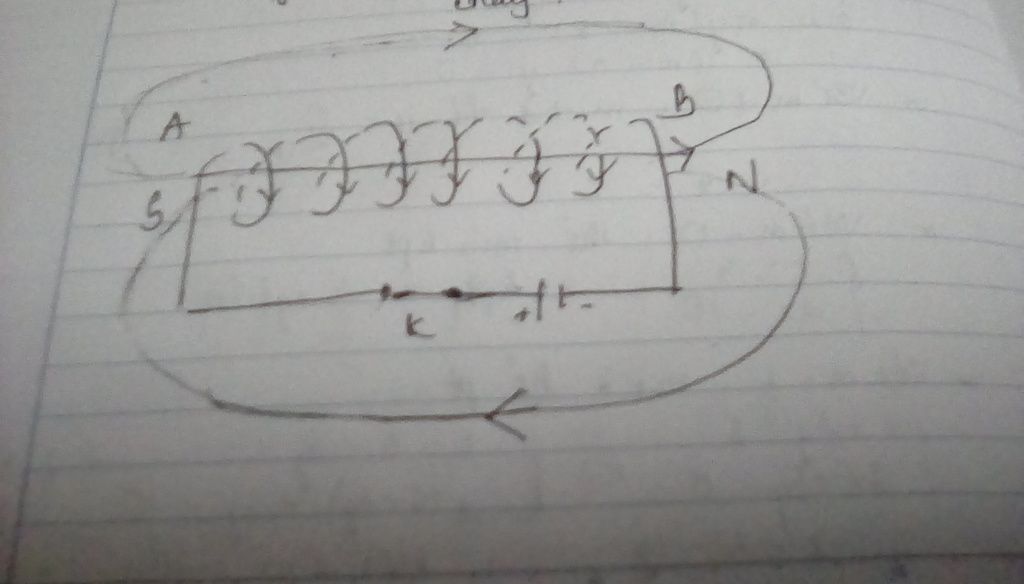 A
B
S
N
K
+
-